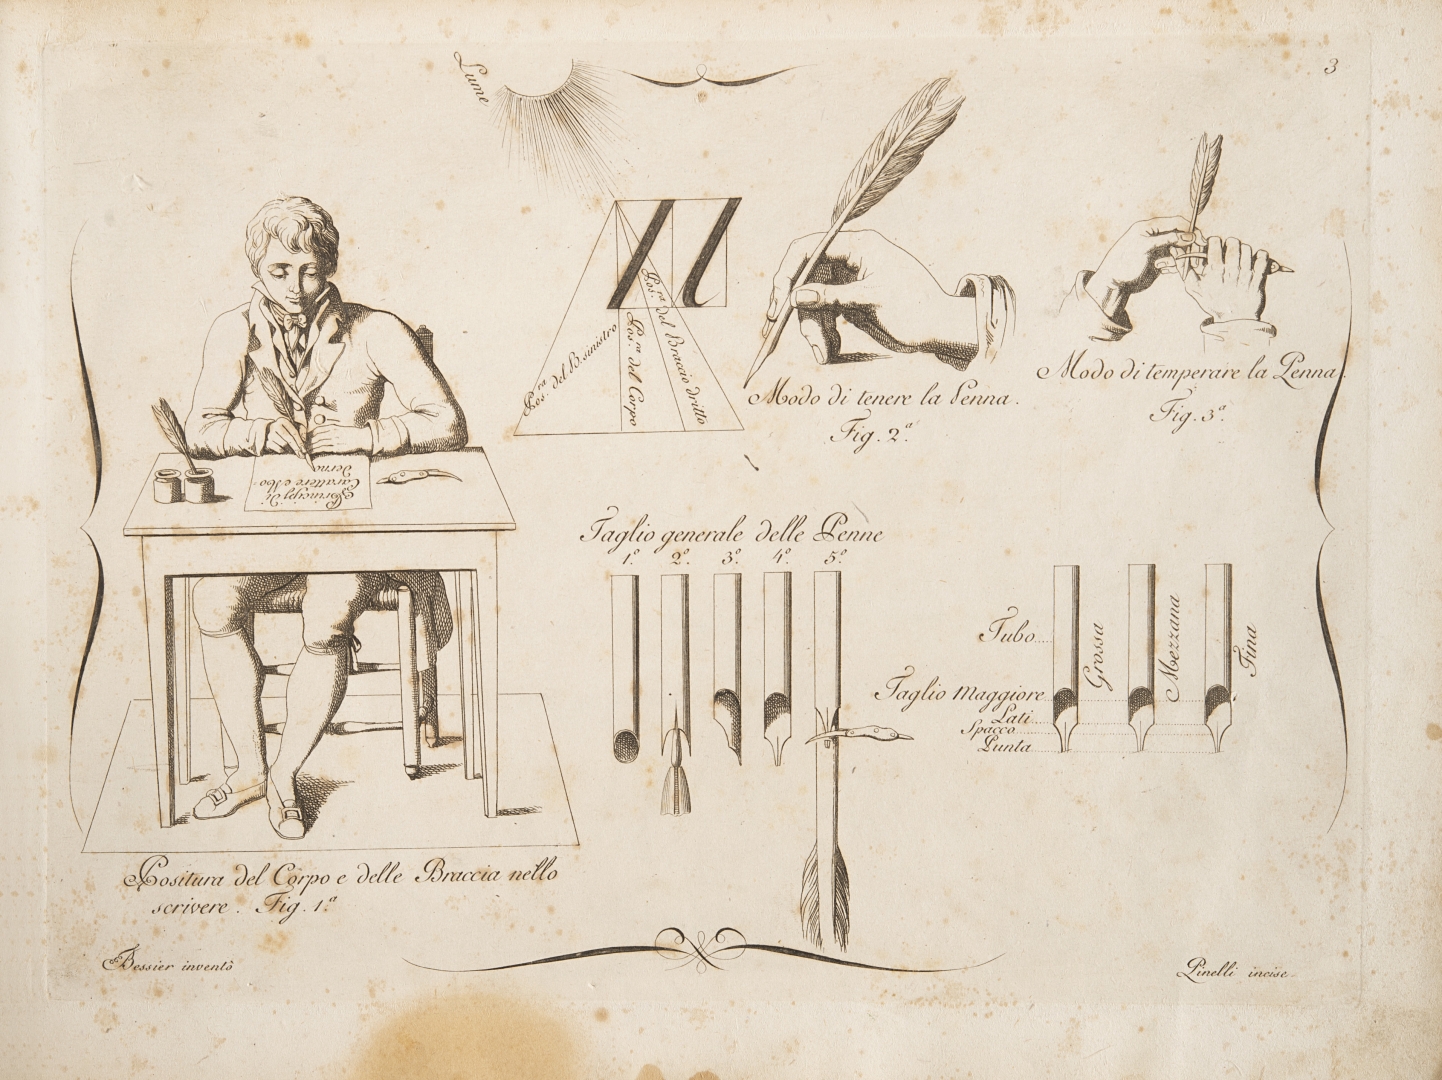 3
Lume
Pos.ra del B. sinistro
Pos.ra del Corpo
Pos.ra del Braccio dritto
Modo di tenere la Penna.
Fig. 2.a
Modo di temperare la Penna.
Fig. 3.a
Principj di
Carattere Mo=
derno
Taglio generale delle Penne
1.o 2.o 3.o 4.o 5.o
Tubo
Taglio Maggiore
Lati
Spacco
Punta
Grossa
Mezzana
Fina
Positura del Corpo e delle Braccia nello
scrivere. Fig. 1.a
Bessier inventò
Pinelli incise